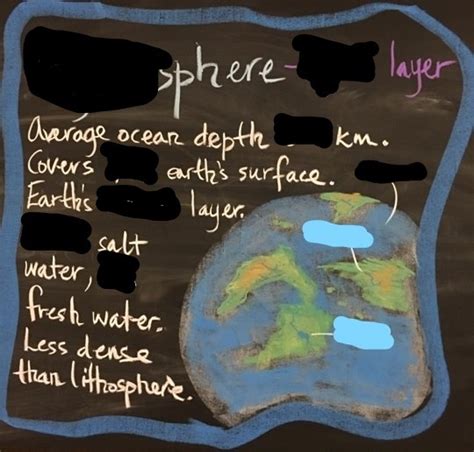 sphere- layer
Average ocean depth km.
Covers earth's surface.
Earth's layer.
salt
water,
fresh water.
Less dense
than lithosphere.